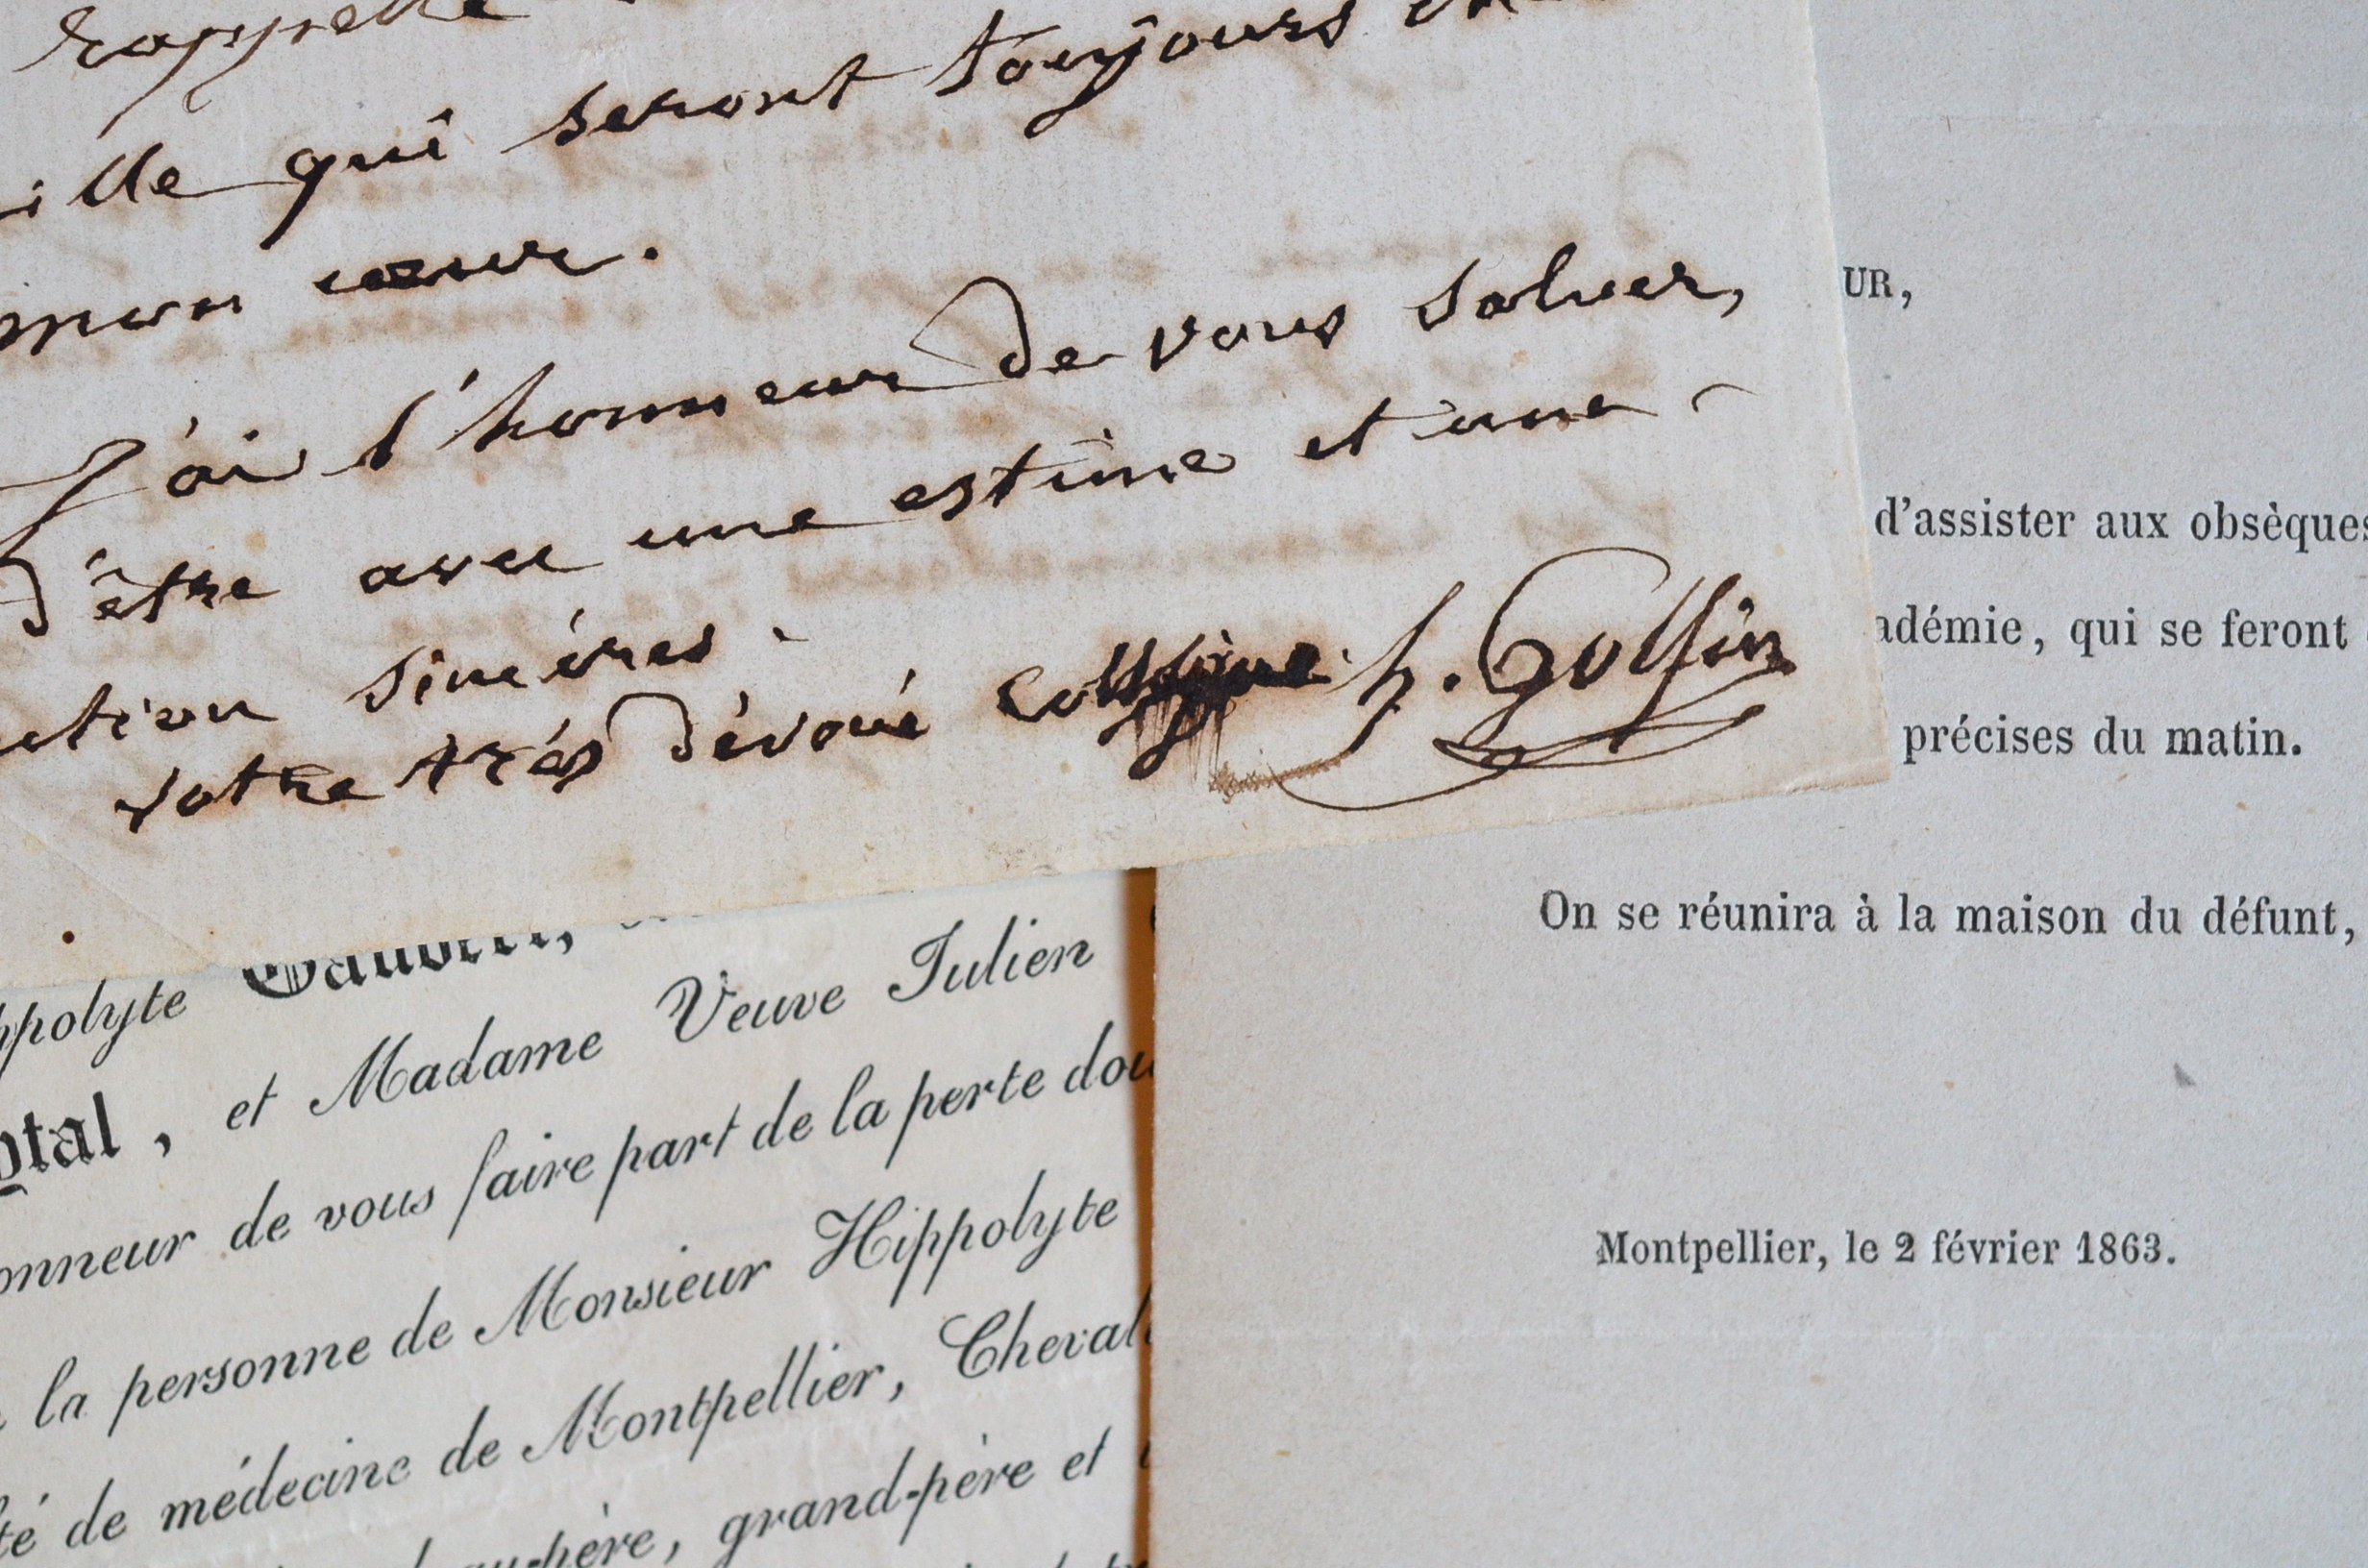 rappelle
ille qui seront toujours
mon cœur.
J'ai l'honneur de vous saluer,
d'être avec une estime et une
ction sincères.
votre très dévoué collègue h. Golfin
UR,
d'assister aux obsèques
adémie, qui se feront
précises du matin.
On se réunira à la maison du défunt,
Montpellier, le 2 février 1863.
ppolyte
ptal, et Madame Veuve Julien
onneur de vous faire part de la perte dou
la personne de Monsieur Hippolyte
té de médecine de Montpellier, Cheval
au-père, grand-père et